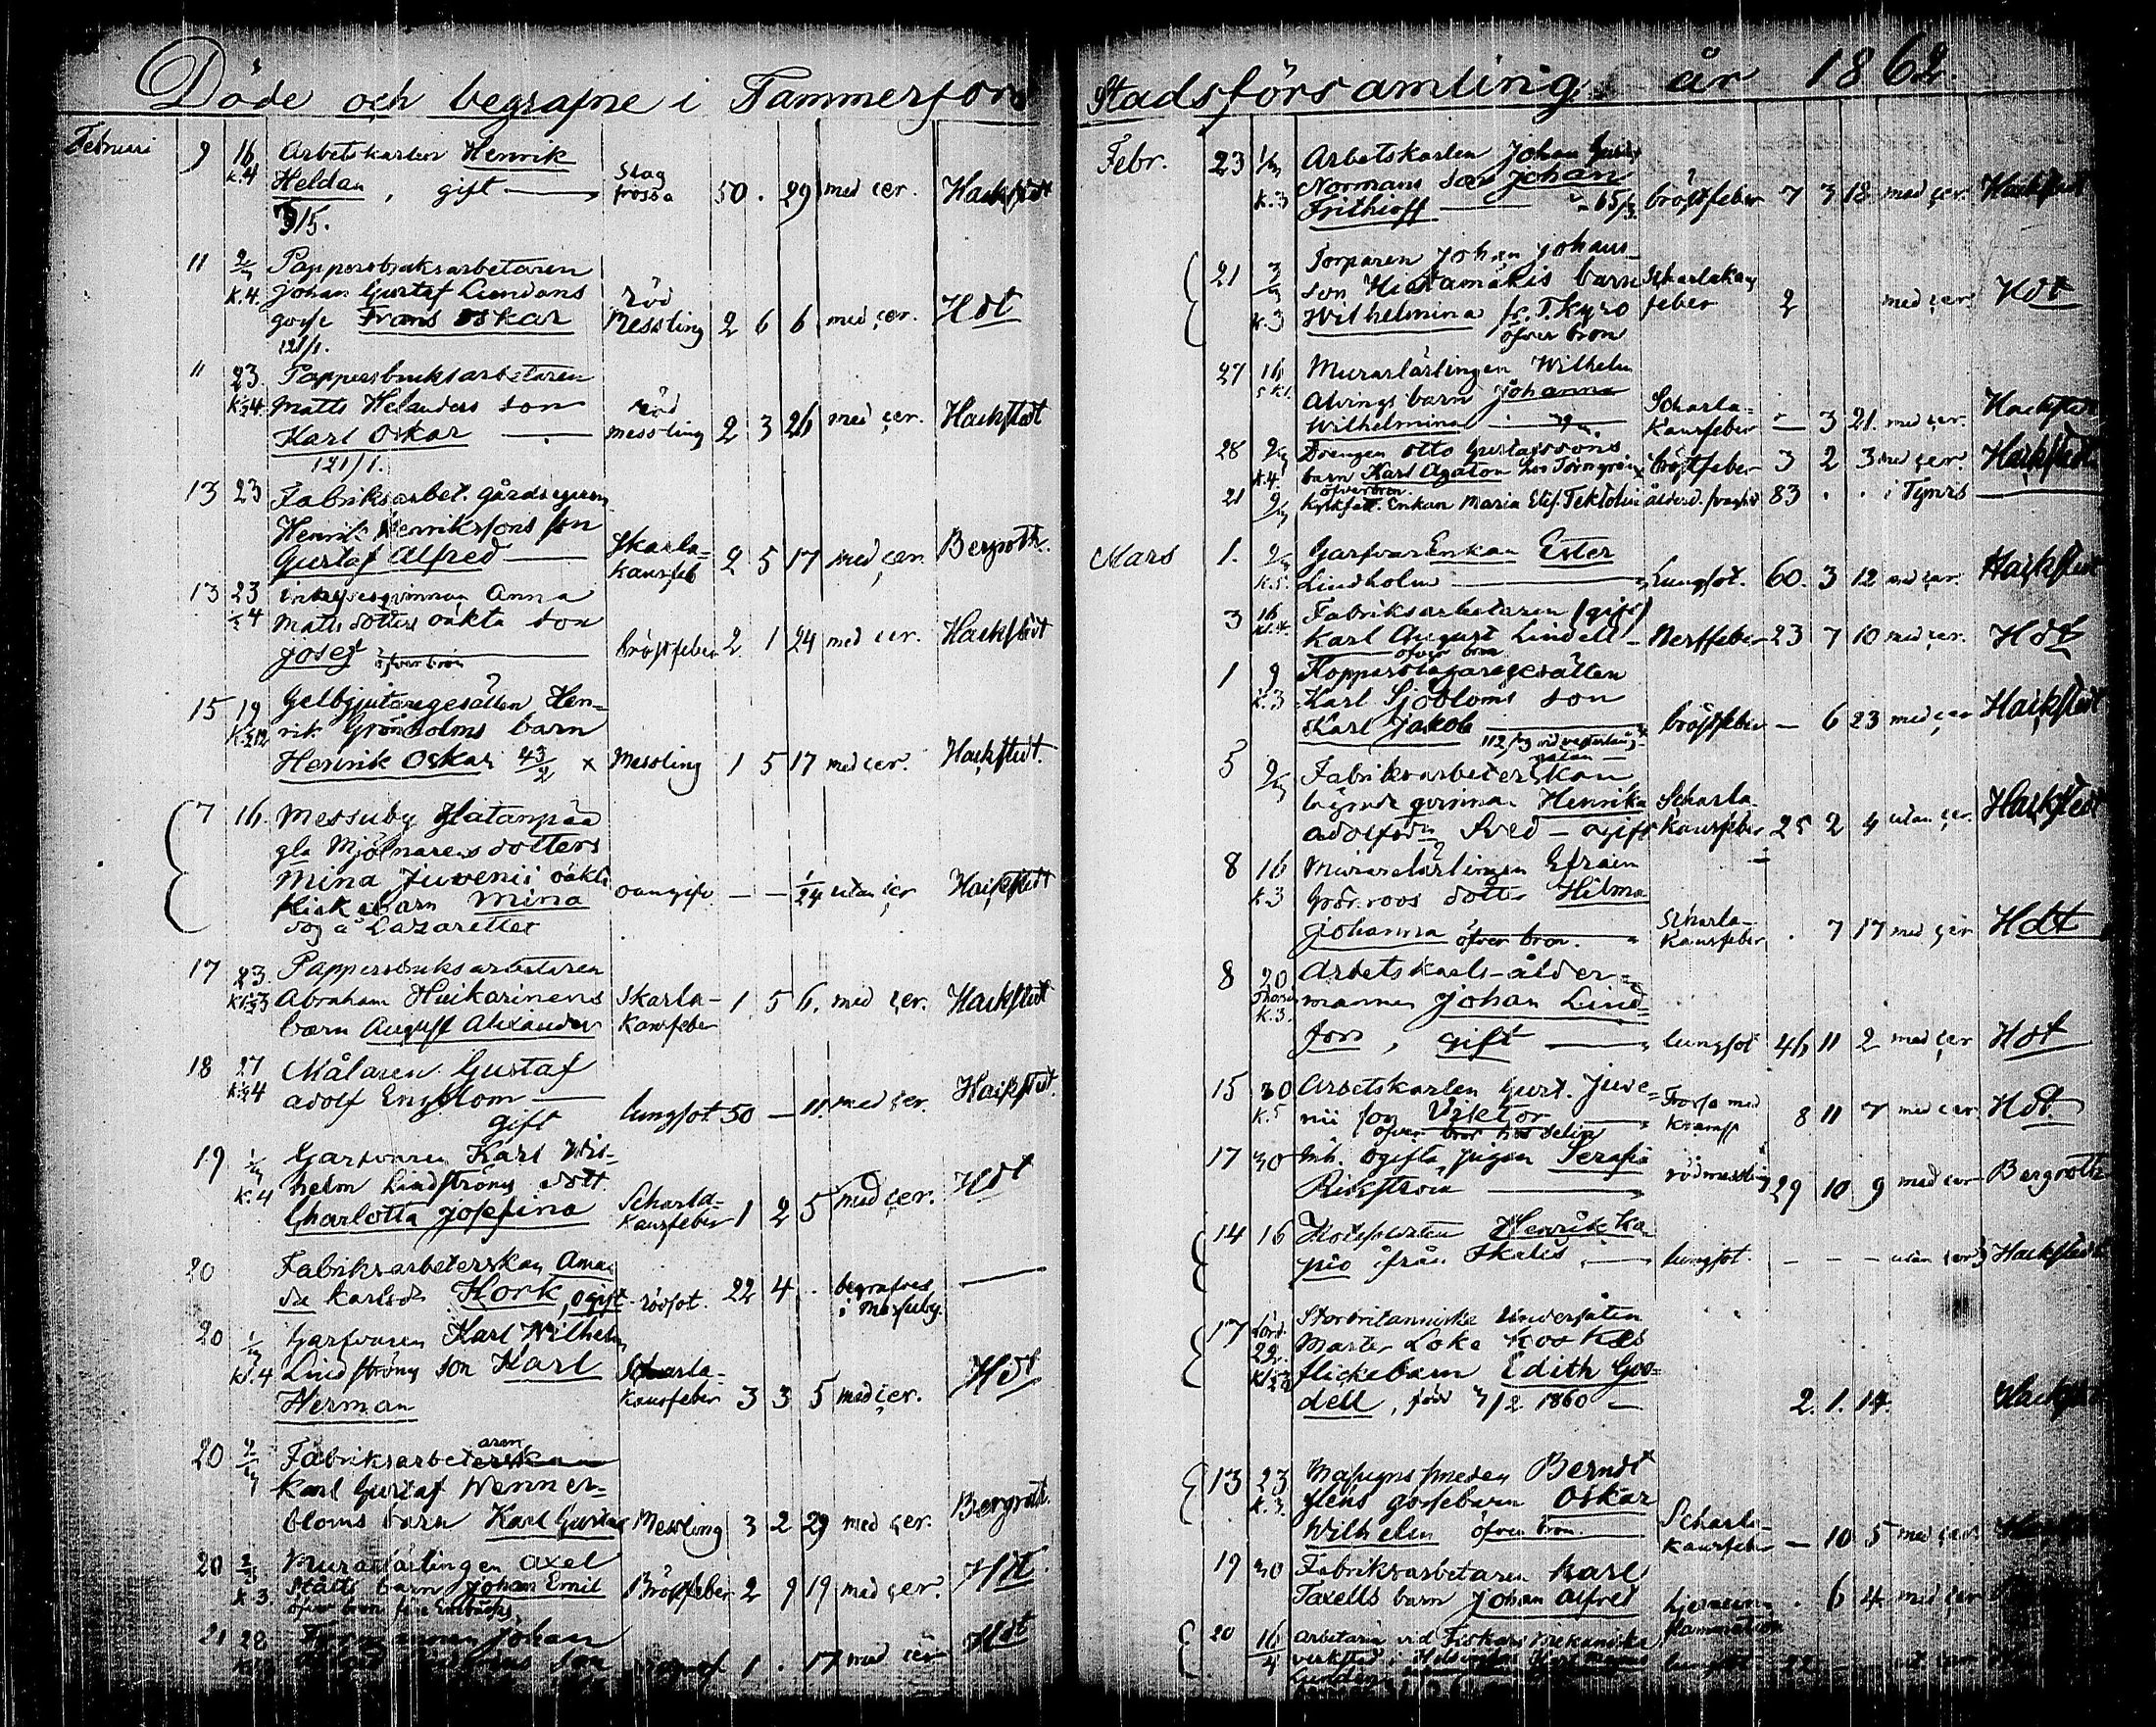 Döde och begrafne i Tammerfors Stadsförsamling år 1862.
Februari 9 16 Arbetskarlen Henrik
k.4 Heldan, gift — Slag
frossa 50 . 29 med cer. Hackstedt
315.
11 2/3 Pappersbruksarbetaren
k.4. Johan Gustaf Lundans
gosse Frans Oskar röd
Messling 2 6 6 med cer. Hdt
121/1.
" 23. Pappersbruksarbetaren
Matts Helanders son röd
Karl Oskar — messling 2 3 26 med cer. Hackstedt
121/1.
13 23 Fabriksarbet. gårdsegaren
Henrik Henrikssons son
Gustaf Alfred — Skarla-
kansfeb 2 5 17 med cer. Bergroth.
13 23 inhysesqvinnan Anna
4 Matts dotters oäkta son
Josef — bröstfeber 2 1 24 med cer. Hackstedt
öfver bron
15 19 Gelbgjutaregesällen Hen-
rik Grönholms barn
Henrik Oskar 43/2 x Messling 1 5 17 med cer. Hackstedt.
7 16 Messuby Hatanpää
gla Mjölnarens dotters
Mina Juvenii oäkta
flickebarn Mina oangifv. — — 1/24 utan cer Hackstedt
dog å Lazarettet
17 23. Pappersbruksarbetaren
Abraham Huikarinens Skarla-
barn August Alexander kansfeber 1 5 6. med cer. Hackstedt
18 27 Målaren Gustaf
4 Adolf Engblom —
gift lungsot 50 — 11. med cer. Hackstedt.
19 Garfvaren Karl Wil-
k.4 helm Lindströms dott.
Charlotta Josefina Scharla-
kansfeber 1 2 5 med cer. Hdt
20 Fabriksarbeterskan Aman
da Karlsdr Kork, ogift - rödsot. 22 4 . begrafves
i Messuby. —
20 Garfvaren Karl Wilhelm
kl.4 Lindströms son Karl
Herman Scharla-
kansfeber 3 3 5 med cer. Hdt
20 2/3 Fabriksarbetaren
Karl Gustaf Wenner-
bloms barn Karl Gustaf Messling 3 2 29 med cer. Bergroth.
20 2/3 Murarlärlingen Axel
k 3. Ståhls barn Johan Emil Bröstfeber 2 9 19 med cer. Hdt
öfver bron
21 28 Johan
son 1 . 17 med cer Hdt
Febr. 23 Arbetskarlen Johan Gust.
k.3 Normans son Johan
Frithioff — 65/3 bröstfeber 7 3 18 med cer. Hackstedt
21 2/3 Torparen Johan Johans-
son Hietamäkis barn Scharlakans
k.3 Wilhelmina fr. T.Kyro feber 2 med cer. Hdt
öfver bron
27 16 Murarlärlingen Wilhelm
Alvings barn Johanna
Wilhelmina — Scharla-
kansfeber — 3 21. med cer. Hackstedt
28 Drengen Otto Gustafssons
k.4. barn Karl Agaton hos Törngren bröstfeber 3 2 3 med cer. Hackstedt
öfver bron.
21 Enkan Maria Elis. Tektolin ålderd. svaghet 83 . . i Tyrvis —
Mars 1. Garfvar Enkan Ester
k.5. Lindholm — Lungsot. 60. 3 12 med cer. Hackstedt
3 16 Fabriksarbetaren (gift)
kl.4. Karl August Lindell - Nerffeber 23 7 10 med cer. Hdt
öfver bron
1 9 Kopparslagaregesällen
k.3 Karl Sjöbloms son
Karl Jakob — bröstfeber — 6 23 med cer Hackstedt
5 Fabriksarbeterskan
legande qvinnan Henrika Scharla-
Adolfsdr Sved — ogift kansfeber 25 2 4 utan cer. Hackstedt
8 16 Murarelärlingen Efraim
k.3 Grönroos dotter Hilma
Johanna öfver bron. Scharla-
kansfeber . 7 17 med cer Hdt
8 20 Arbetskarls-ålder-
Thorsd. mannen Johan Lind-
k.3. fors, gift — lungsot 46 11 2 med cer Hdt
15 30 Arbetskarlen Gust. Juve-
k.5 nii son Viktor — Frossa med
kramp 8 11 7 med cer. Hdt
öfver bron hos Selin
17 30 Inh. ogifta pigan Serafia
Rikström — rödmessling 29 10 9 med cer Bergroth
14 16 Rotesoldaten Henrik Ka
pio från Ikalis — lungsot. — — — utan cer Hackstedt
17 Lörd. Storbritanniske Undersåten
22. Marter Loke Kookes
flickebarn Edith Goo-
dell, född 3/2 1860 — 2. 1. 14. Hackstedt
13 23 Masugnssmeden Berndt
k.3. fléns gossebarn Oskar
Wilhelm öfver bron. Scharla-
kansfeber — 10 5 med cer
19 30 Fabriksarbetaren Karl
Taxells barn Johan Alfred hjerninn-
flammation . 6 4 med cer
20 16/4 Arbetaren vid Fiskars Mekaniska
verkstad i Helsingfors Karl Magnus lungsot 22